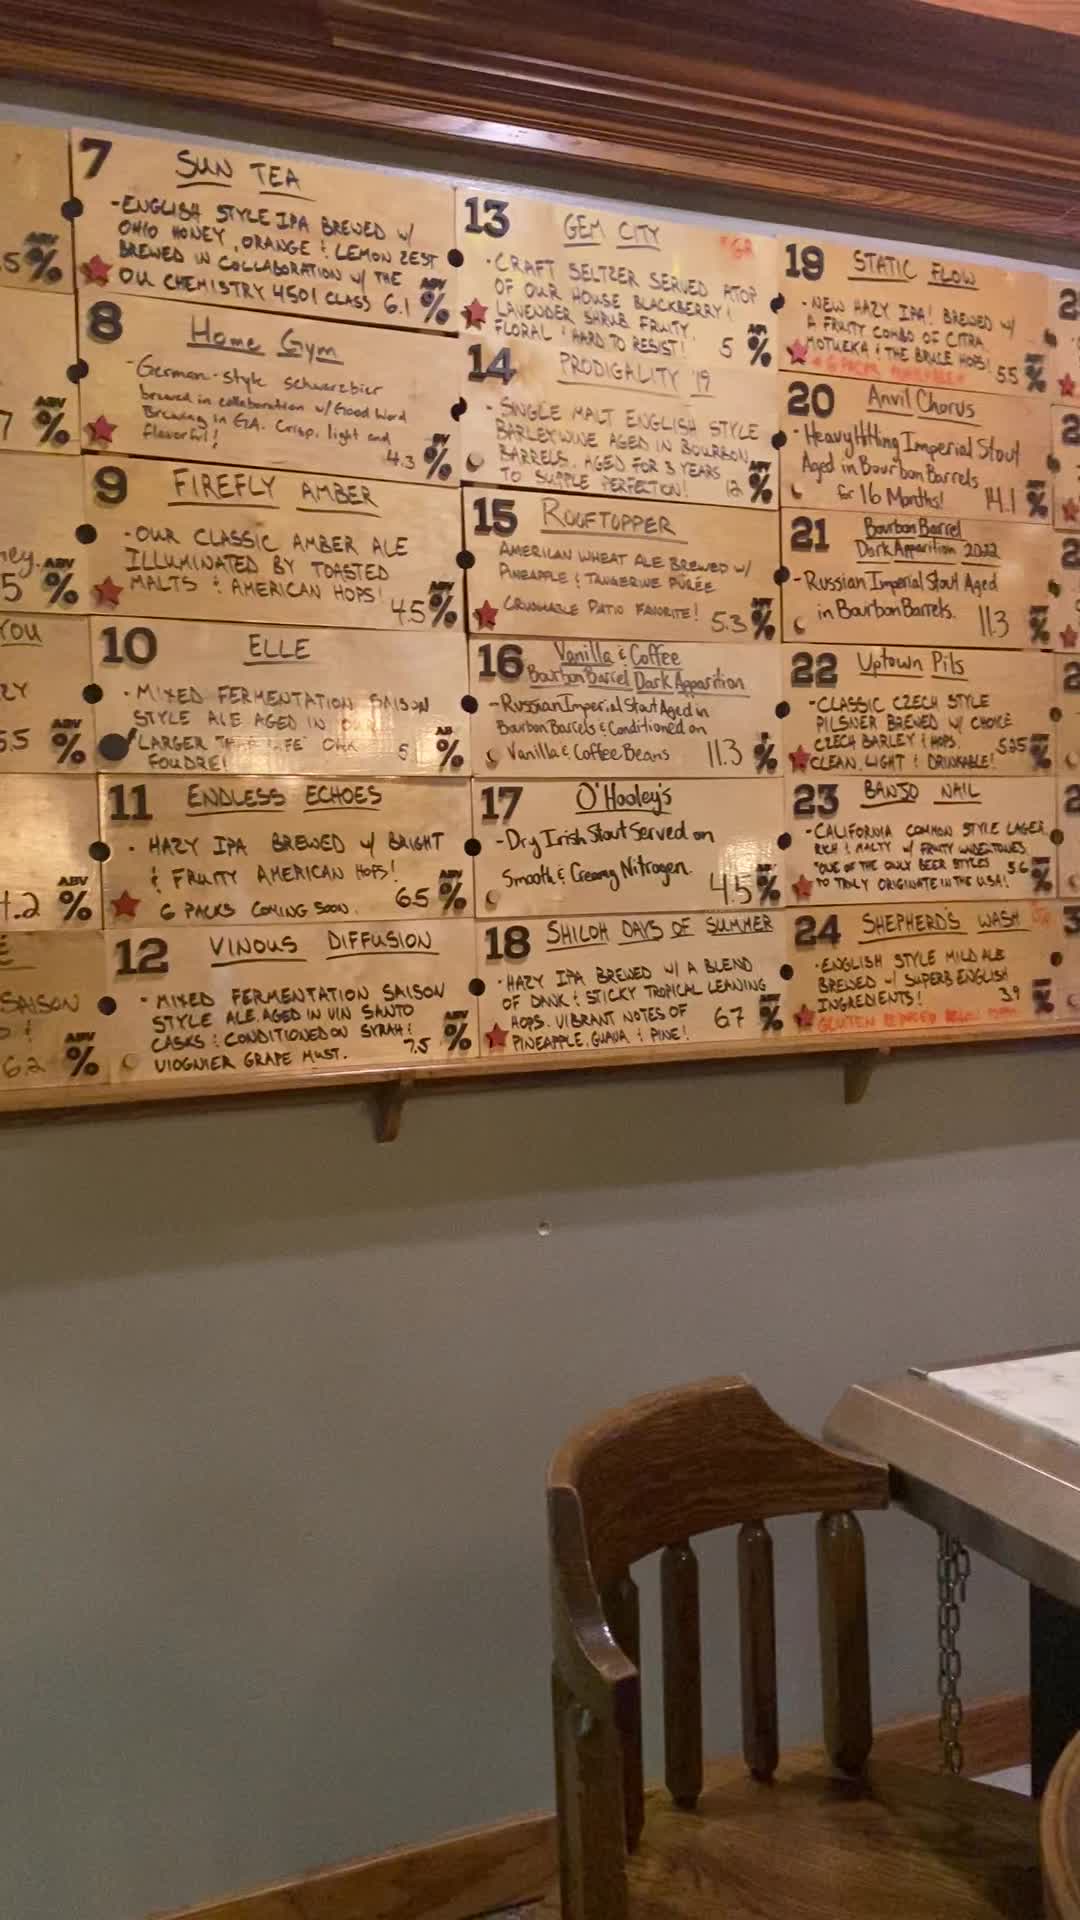 .5%
ABV
7 %
ABV
ney.
5 %
ABV
YOU
ZY
5.5 %
ABV
4.2 %
ABV
E
SAISON
6.2 %
ABV
7 SUN TEA
-ENGLISH STYLE IPA BREWED W/
OHIO HONEY, ORANGE & LEMON ZEST
BREWED IN COLLABORATION W/ THE
OU CHEMISTRY 4501 CLASS 6.1 %
ABV
8 Home Gym
-German-style schwarzbier
brewed in collaboration w/ Good Word
Brewing in GA. Crisp, light and
flavorful!
4.3 %
9 FIREFLY AMBER
-OUR CLASSIC AMBER ALE
ILLUMINATED BY TOASTED
MALTS & AMERICAN HOPS!
4.5 %
ABV
10 ELLE
- MIXED FERMENTATION SAISON
STYLE ALE AGED IN OUR
"LARGER THAN LIFE" OAK
FOUDRE!
5 %
11 ENDLESS ECHOES
- HAZY IPA BREWED W/ BRIGHT
& FRUITY AMERICAN HOPS!
6 PACKS COMING SOON. 6.5 %
ABV
12 VINOUS DIFFUSION
- MIXED FERMENTATION SAISON
STYLE ALE, AGED IN VIN SANTO
CASKS & CONDITIONED ON SYRAH &
VIOGNIER GRAPE MUST. 7.5 %
ABV
13 GEM CITY *GR
- CRAFT SELTZER SERVED ATOP
OF OUR HOUSE BLACKBERRY &
LAVENDER SHRUB. FRUITY,
FLORAL & HARD TO RESIST! 5 %
ABV
14 PRODIGALITY '19
- SINGLE MALT ENGLISH STYLE
BARLEYWINE AGED IN BOURBON
BARRELS. AGED FOR 3 YEARS
TO SUPPLE PERFECTION! 12 %
ABV
15 ROOFTOPPER
AMERICAN WHEAT ALE BREWED W/
PINEAPPLE & TANGERINE PURÉE
CRUSHABLE PATIO FAVORITE! 5.3 %
ABV
16 Vanilla & Coffee
Bourbon Barrel Dark Apparition
-Russian Imperial Stout Aged in
Bourbon Barrels & Conditioned on
Vanilla & Coffee Beans 11.3 %
17 O'Hooley's
-Dry Irish Stout Served on
Smooth & Creamy Nitrogen.
4.5 %
18 SHILOH DAYS OF SUMMER
-HAZY IPA BREWED W/ A BLEND
OF DANK & STICKY TROPICAL LEANING
HOPS. VIBRANT NOTES OF
PINEAPPLE, GUAVA & PINE! 6.7 %
ABV
19 STATIC FLOW
- NEW HAZY IPA! BREWED W/
A FRUITY COMBO OF CITRA,
MOTUEKA & THE BRUCE HOPS!
*6 PACKS AVAILABLE* 5.5 %
20 Anvil Chorus
-Heavy Hitting Imperial Stout
Aged in Bourbon Barrels
for 16 Months! 14.1 %
21 Bourbon Barrel
Dark Apparition 2022
-Russian Imperial Stout Aged
in Bourbon Barrels. 11.3 %
22 Uptown Pils
-CLASSIC CZECH STYLE
PILSNER BREWED W/ CHOICE
CZECH BARLEY & HOPS. 5.25 %
CLEAN, LIGHT & DRINKABLE!
23 BANJO NAIL
-CALIFORNIA COMMON STYLE LAGER.
RICH & MALTY W/ FRUITY UNDERTONES.
*ONE OF THE ONLY BEER STYLES 5.6 %
TO TRULY ORIGINATE IN THE USA!
24 SHEPHERD'S WASH
-ENGLISH STYLE MILD ALE
BREWED W/ SUPERB ENGLISH
INGREDIENTS! 3.9 %
GLUTEN REDUCED BELOW